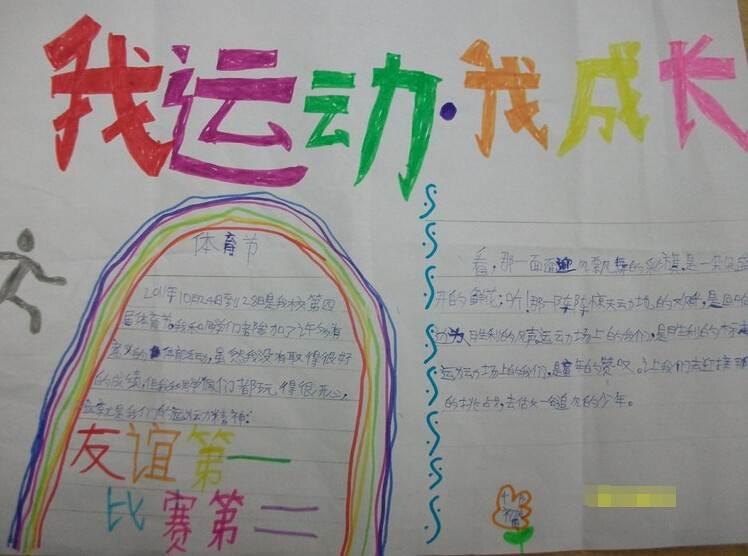 我运动·我成长
体育节
2011年10月24日到28日是我校第四
届体育节。我和同学们都参加了许多有
意义的体育活动，虽然我没有取得很好
的成绩，但我和同学们们都玩得很开心，
这就是我们的运动精神：
友谊第一
比赛第二
看，那一面面迎风飘舞的彩旗，是一朵朵盛
开的鲜花；听！那一阵阵惊天动地的欢呼，是
胜利的 运动场上的我们，是胜利的
运动场上的我们，是童年的赞叹。让我们去迎接
的挑战，去做 追风的少年。